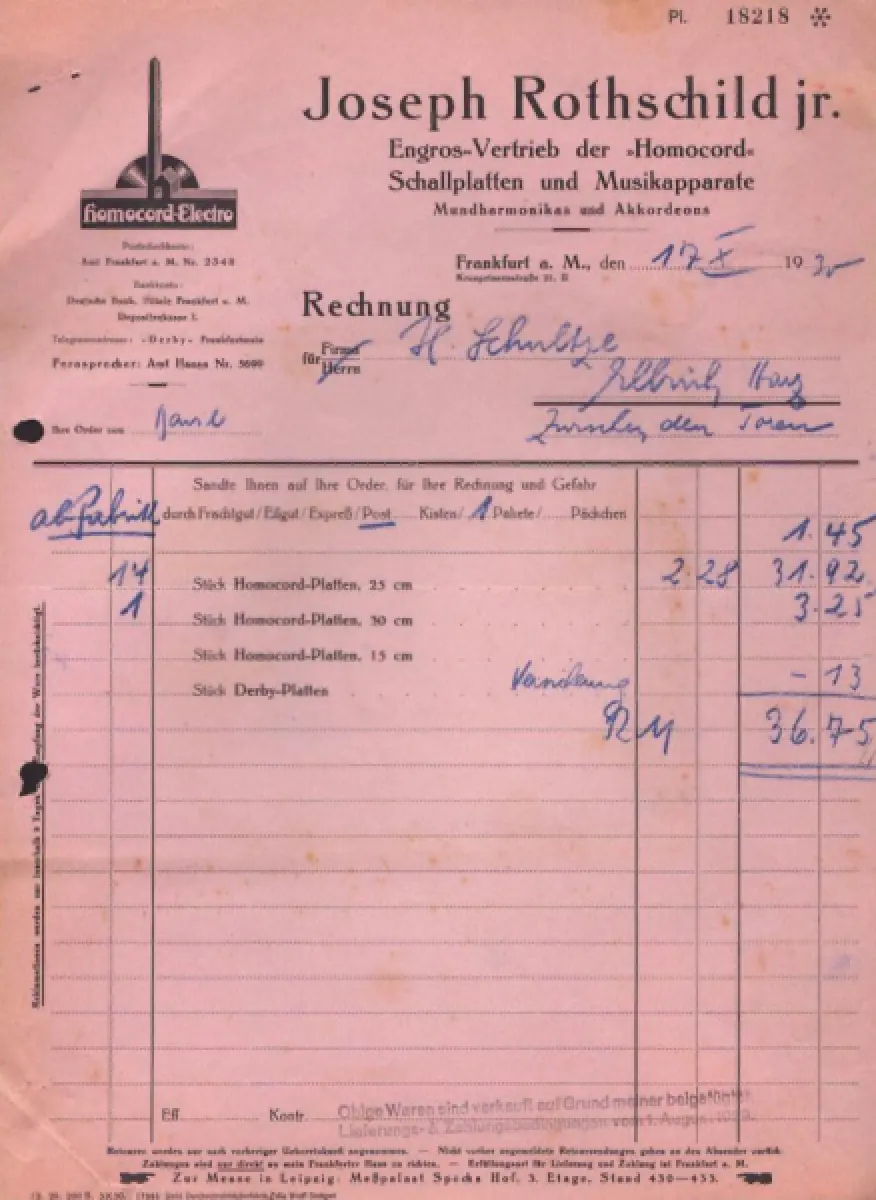 Pl. 18218
Joseph Rothschild jr.
Engros-Vertrieb der »Homocord«
Schallplatten und Musikapparate
Mundharmonikas und Akkordeons
Homocord-Electro
Postscheckkonto:
Amt Frankfurt a. M. Nr. 2348
Bankkonto:
Deutsche Bank, Filiale Frankfurt a. M.
Depositenkasse I.
Telegrammadresse: »Derby« Frankfurtmain
Fernsprecher: Amt Hansa Nr. 5699
Frankfurt a. M., den 17 X 193
Rechnung
für Firma
Herrn
H. Schultze
Ellrich Harz
Zwischen den Toren
Ihre Order von
Sandte Ihnen auf Ihre Order, für Ihre Rechnung und Gefahr
ab Fabrik durch Frachtgut/Eilgut/Expreß/Post Kisten/ 1 Pakete/ Päckchen 1.45
14 Stück Homocord-Platten, 25 cm 2.28 31.92
1 Stück Homocord-Platten, 30 cm 3.25
Stück Homocord-Platten, 15 cm
Stück Derby-Platten - 13
36.75
Reklamationen werden nur innerhalb 8 Tagen Empfang der Ware berücksichtigt.
Eff. Kontr.
Obige Waren sind verkauft auf Grund meiner beigefügten
Lieferungs- & Zahlungsbedingungen vom 1. August
Retouren werden nur nach vorheriger Uebereinkunft angenommen. — Nicht vorher angemeldete Retoursendungen gehen an den Absender zurück.
Zahlungen sind nur direkt an mein Frankfurter Haus zu richten. — Erfüllungsort für Lieferung und Zahlung ist Frankfurt a. M.
Zur Messe in Leipzig: Meßpalast Specks Hof, 3. Etage, Stand 430-433.